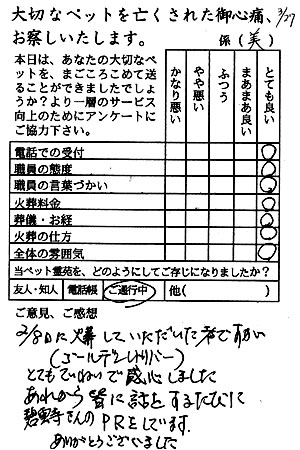 大切なペットを亡くされた御心痛、
お察しいたします。
3/27
係(美)
本日は、あなたの大切なペットを、まごころこめて送ることができましたでしょうか？より一層のサービス向上のためにアンケートにご協力下さい。
かなり悪い
やや悪い
ふつう
まあまあ良い
とても良い
電話での受付
職員の態度
職員の言葉づかい
火葬料金
葬儀・お経
火葬の仕方
全体の雰囲気
当ペット霊苑を、どのようにしてご存じになりましたか？
友人・知人 電話帳 ご通行中 他( )
ご意見、ご感想
2/8日に火葬していただいた者ですが
(ゴールデンレトリバー)
とてもていねいで感心しました
あれから皆に話をするたびに
さんのPRをしています。
ありがとうございました